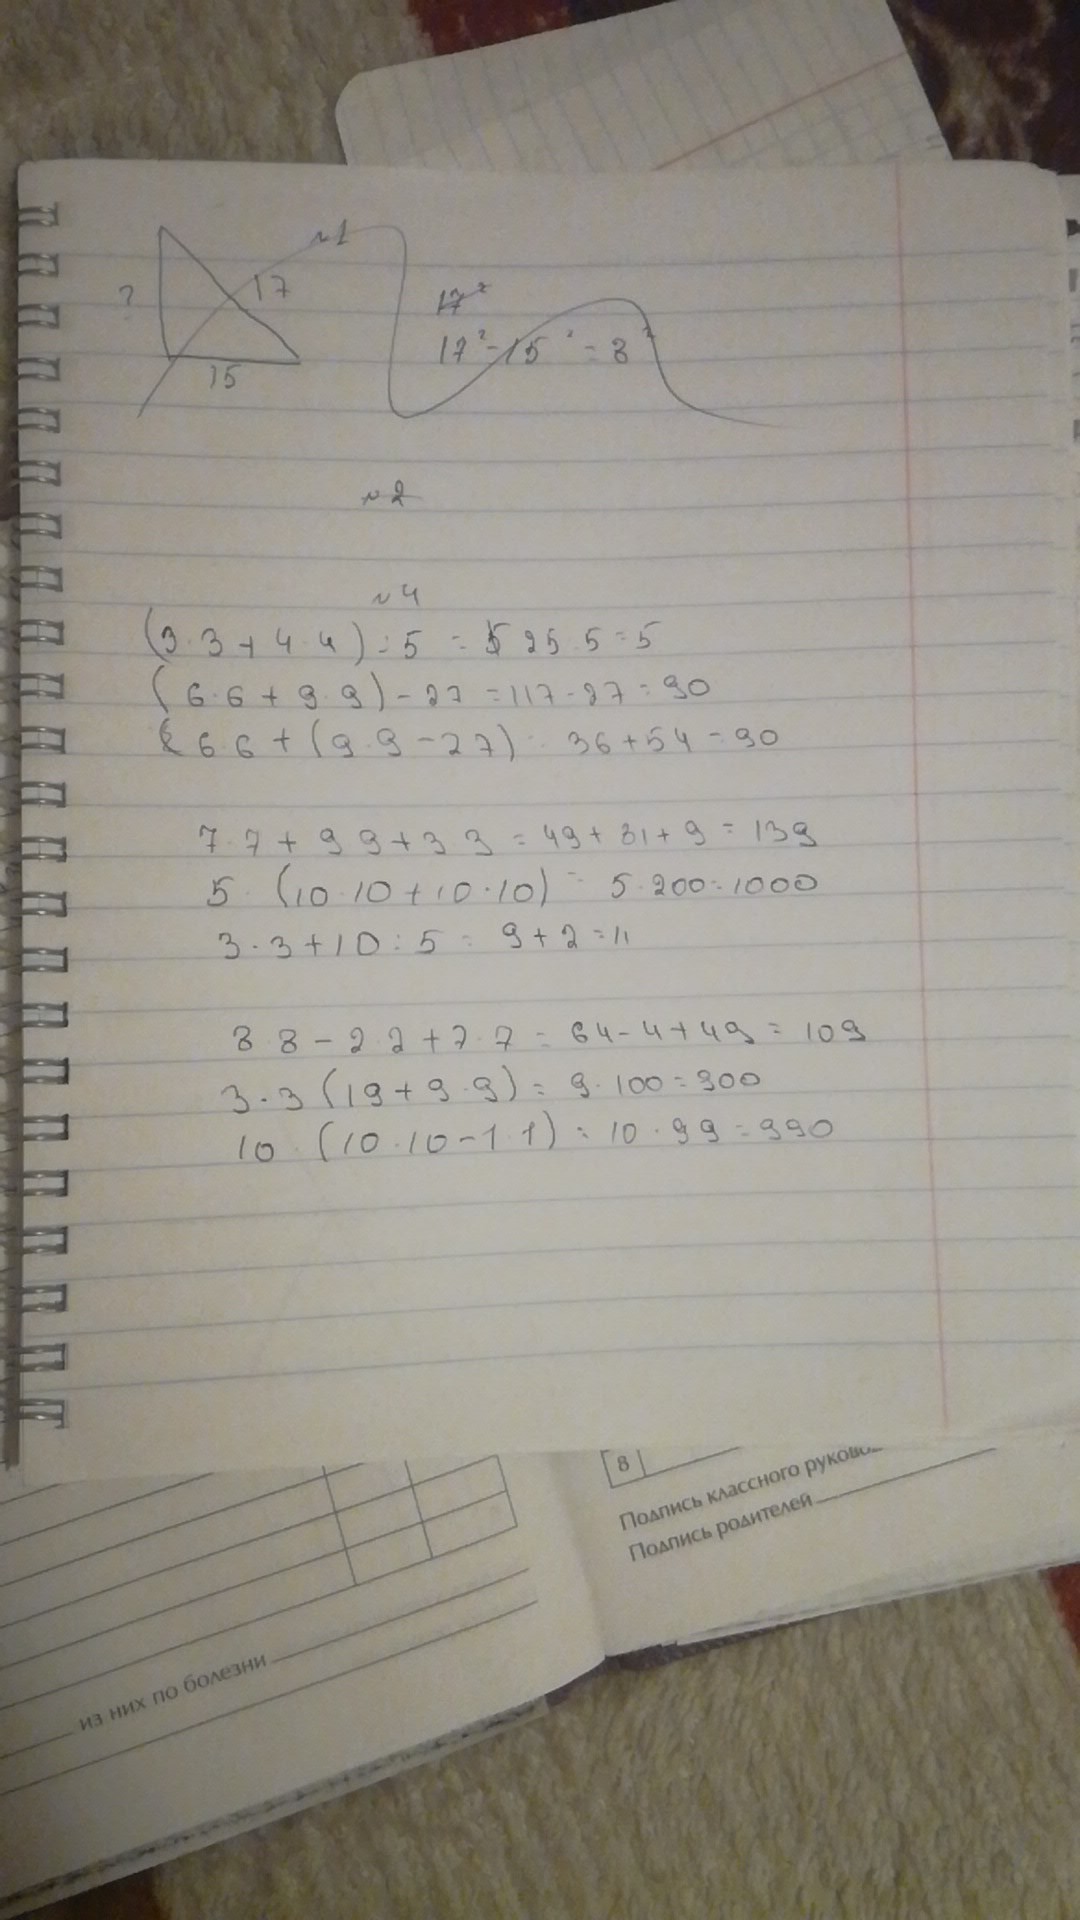 №1
?
17
15
17²
17² - 15² = 8²
№2
№4
(3·3+4·4):5 = 25:5=5
(6·6+9·9)-27=117-27=90
6·6+(9·9-27) = 36+54=90
7·7+9·9+3·3=49+81+9=139
5·(10·10+10·10)=5·200=1000
3·3+10:5=9+2=11
8·8-2·2+7·7=64-4+49=109
3·3(19+9·9)=9·100=900
10·(10·10-1·1)=10·99=990
8
Подпись классного руково
Подпись родителей
из них по болезни